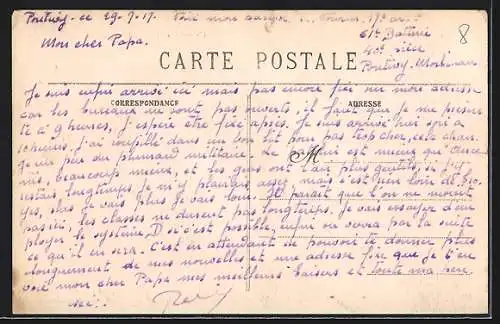 Pontivy - ce 29-7-17. Voici mon adresse
61e Batterie
Mon cher Papa. 40e pièce
CARTE POSTALE
Pontivy. Morbihan
Je suis enfin arrivé ici mais pas encore fixé sur mon adresse
car les bureaux ne sont pas ouverts, il faut que je me présen
CORRESPONDANCE ADRESSE
te à 9 heures, j'espère être fixé après. Je suis arrivé hier soir à
10 heures, j'ai roupillé dans un bon lit pour pas trop cher, cela chan
ge un peu du plumard militaire. Le
M
mis, beaucoup mieux, et les gens ont l'air plus gentils, si j'y
restais longtemps je m'y plairais assez, mais c'est bien loin de
plus je vais plus je vais loin. Il paraît que l'on ne moisit
pas ici, les classes ne durent pas longtemps. Je vais essayer d'em
ployer le système D si c'est possible, enfin on verra par la suite
ce qu'il en sera. C'est en attendant de pouvoir te donner plus
longuement de mes nouvelles et une adresse fixe que je t'en
voie mon cher Papa mes meilleurs baisers et toute ma pen
sée.
8